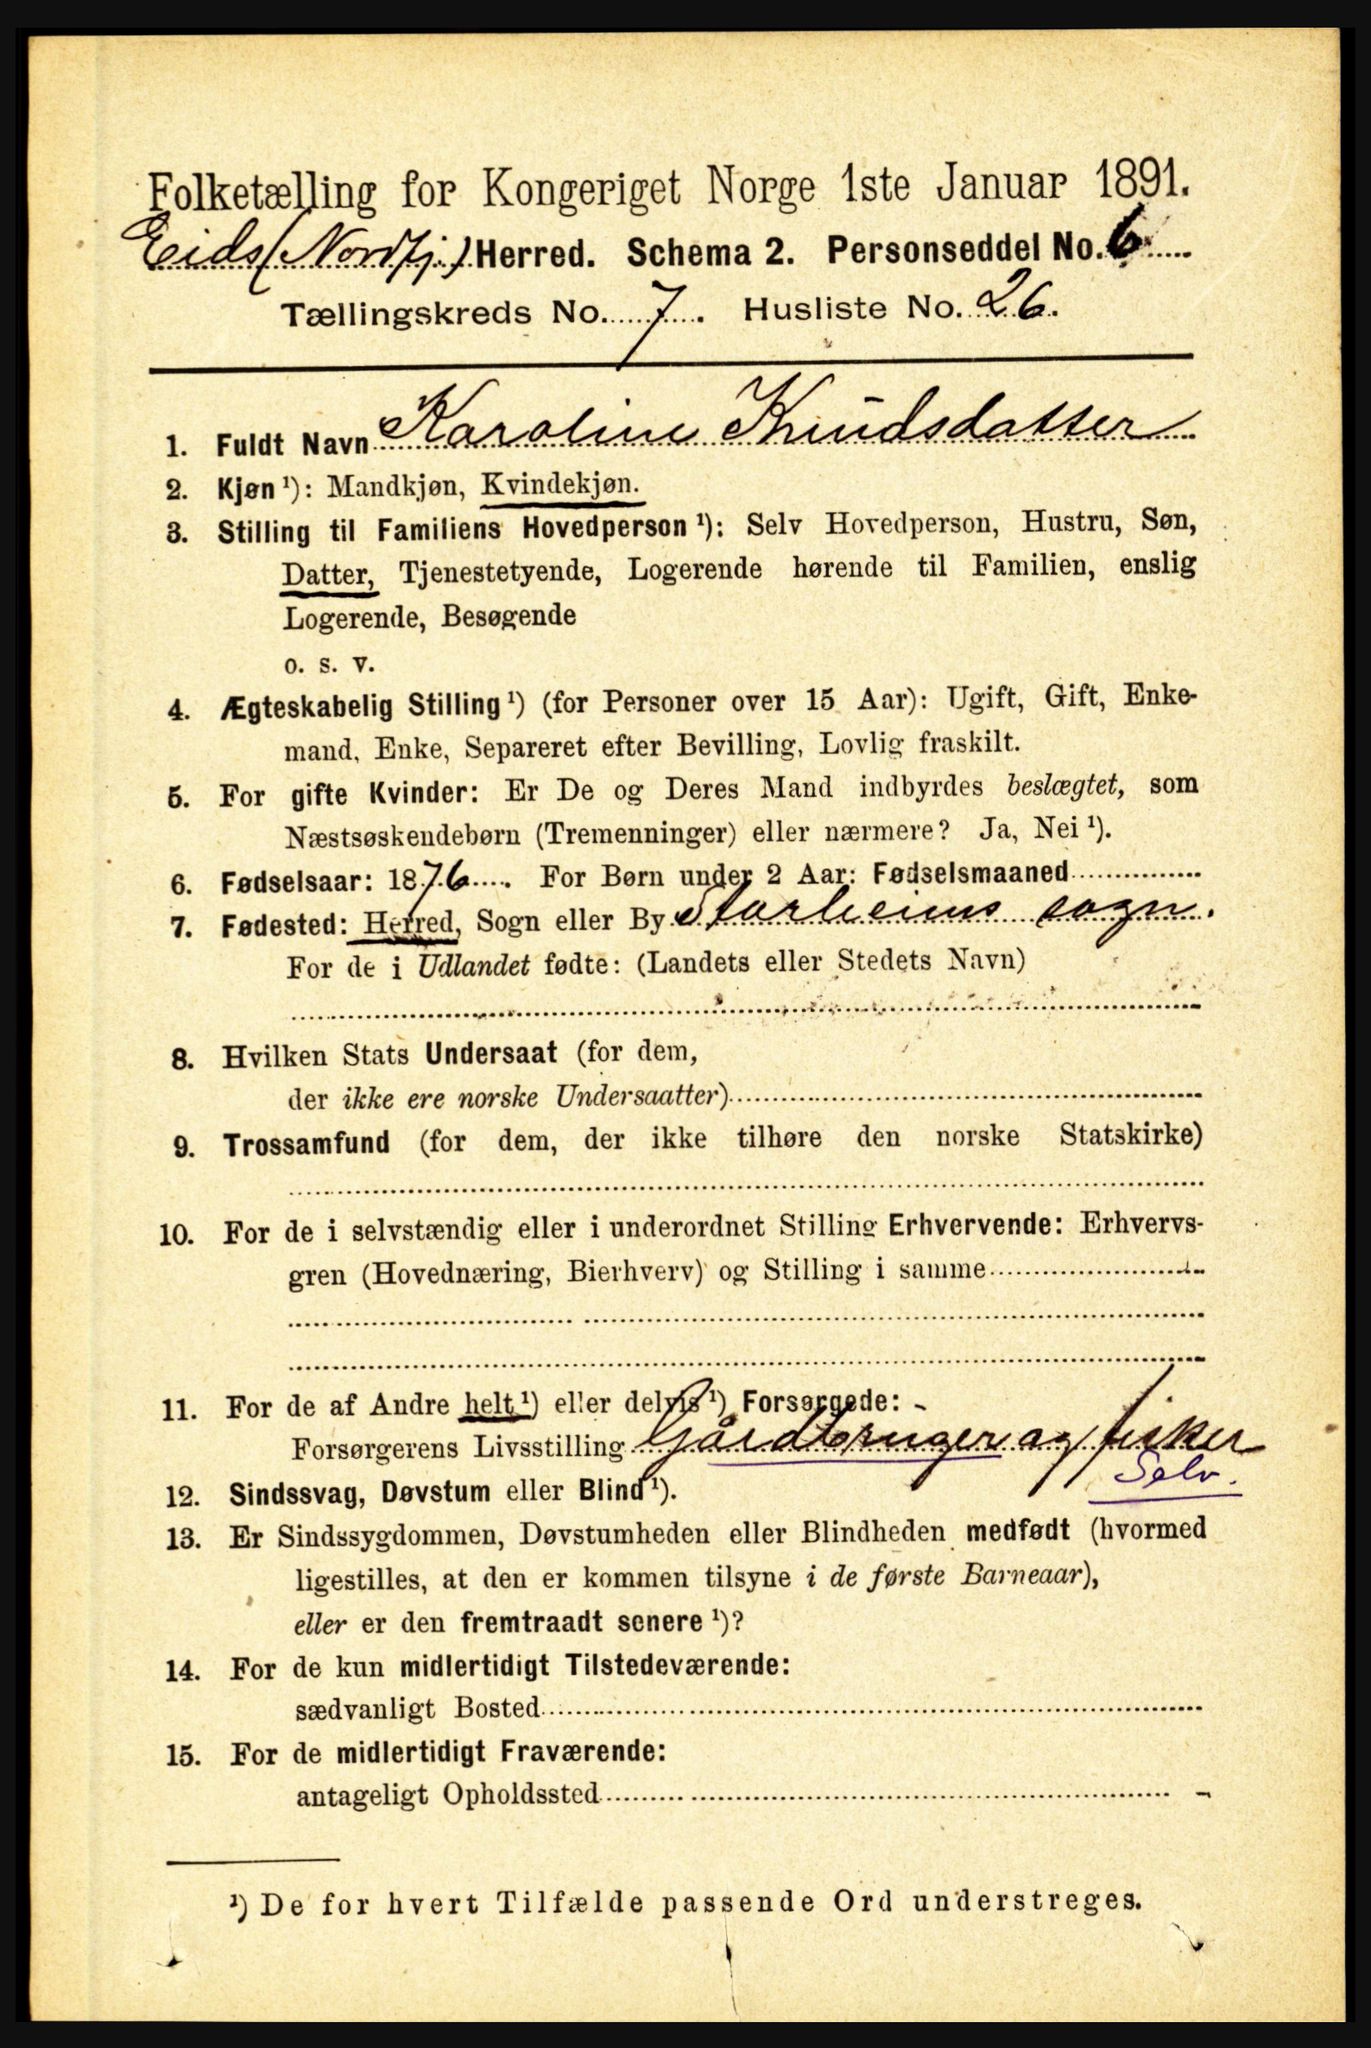 Folketælling for Kongeriget Norge 1ste Januar 1891.
Eids (Nordfj.) Herred. Schema 2. Personseddel No. 6
Tællingskreds No. 7. Husliste No. 26.
1. Fuldt Navn Karoline Knudsdatter
2. Kjøn ¹): Mandkjøn, Kvindekjøn.
3. Stilling til Familiens Hovedperson ¹): Selv Hovedperson, Hustru, Søn,
Datter, Tjenestetyende, Logerende hørende til Familien, enslig
Logerende, Besøgende
o. s. v.
4. Ægteskabelig Stilling ¹) (for Personer over 15 Aar): Ugift, Gift, Enke-
mand, Enke, Separeret efter Bevilling, Lovlig fraskilt.
5. For gifte Kvinder: Er De og Deres Mand indbyrdes beslægtet, som
Næstsøskendebørn (Tremenninger) eller nærmere? Ja, Nei ¹).
6. Fødselsaar: 1876. For Børn under 2 Aar: Fødselsmaaned
7. Fødested: Herred, Sogn eller By Starheims sogn.
For de i Udlandet fødte: (Landets eller Stedets Navn)
8. Hvilken Stats Undersaat (for dem,
der ikke ere norske Undersaatter)
9. Trossamfund (for dem, der ikke tilhøre den norske Statskirke)
10. For de i selvstændig eller i underordnet Stilling Erhvervende: Erhvervs-
gren (Hovednæring, Bierhverv) og Stilling i samme
11. For de af Andre helt ¹) eller delvis ¹) Forsørgede:
Forsørgerens Livsstilling Gårdbruger og fisker
Selv.
12. Sindssvag, Døvstum eller Blind ¹).
13. Er Sindssygdommen, Døvstumheden eller Blindheden medfødt (hvormed
ligestilles, at den er kommen tilsyne i de første Barneaar),
eller er den fremtraadt senere ¹)?
14. For de kun midlertidigt Tilstedeværende:
sædvanligt Bosted
15. For de midlertidigt Fraværende:
antageligt Opholdssted
¹) De for hvert Tilfælde passende Ord understreges.